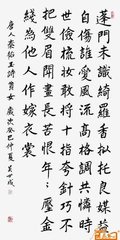 蓬門未識綺羅香擬托良媒益
自傷誰愛風流高格調共憐時
世儉梳妝敢將十指夸針巧不
把雙眉鬥畫長苦恨年年壓金
綫為他人作嫁衣裳
唐人秦韜玉詩貧女 歲次癸巳仲夏